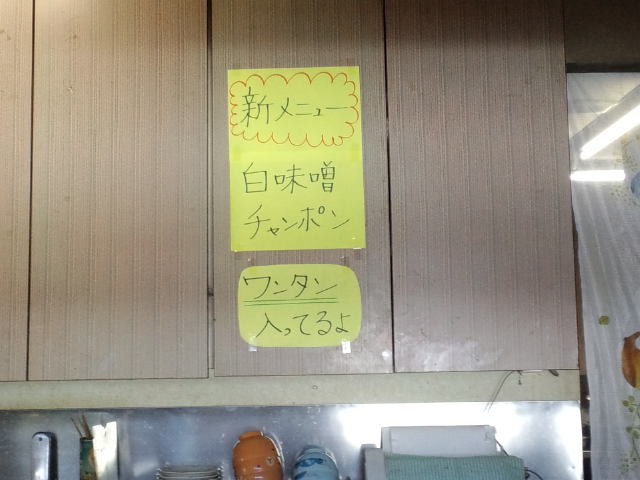 新メニュー
白味噌
チャンポン
ワンタン
入ってるよ